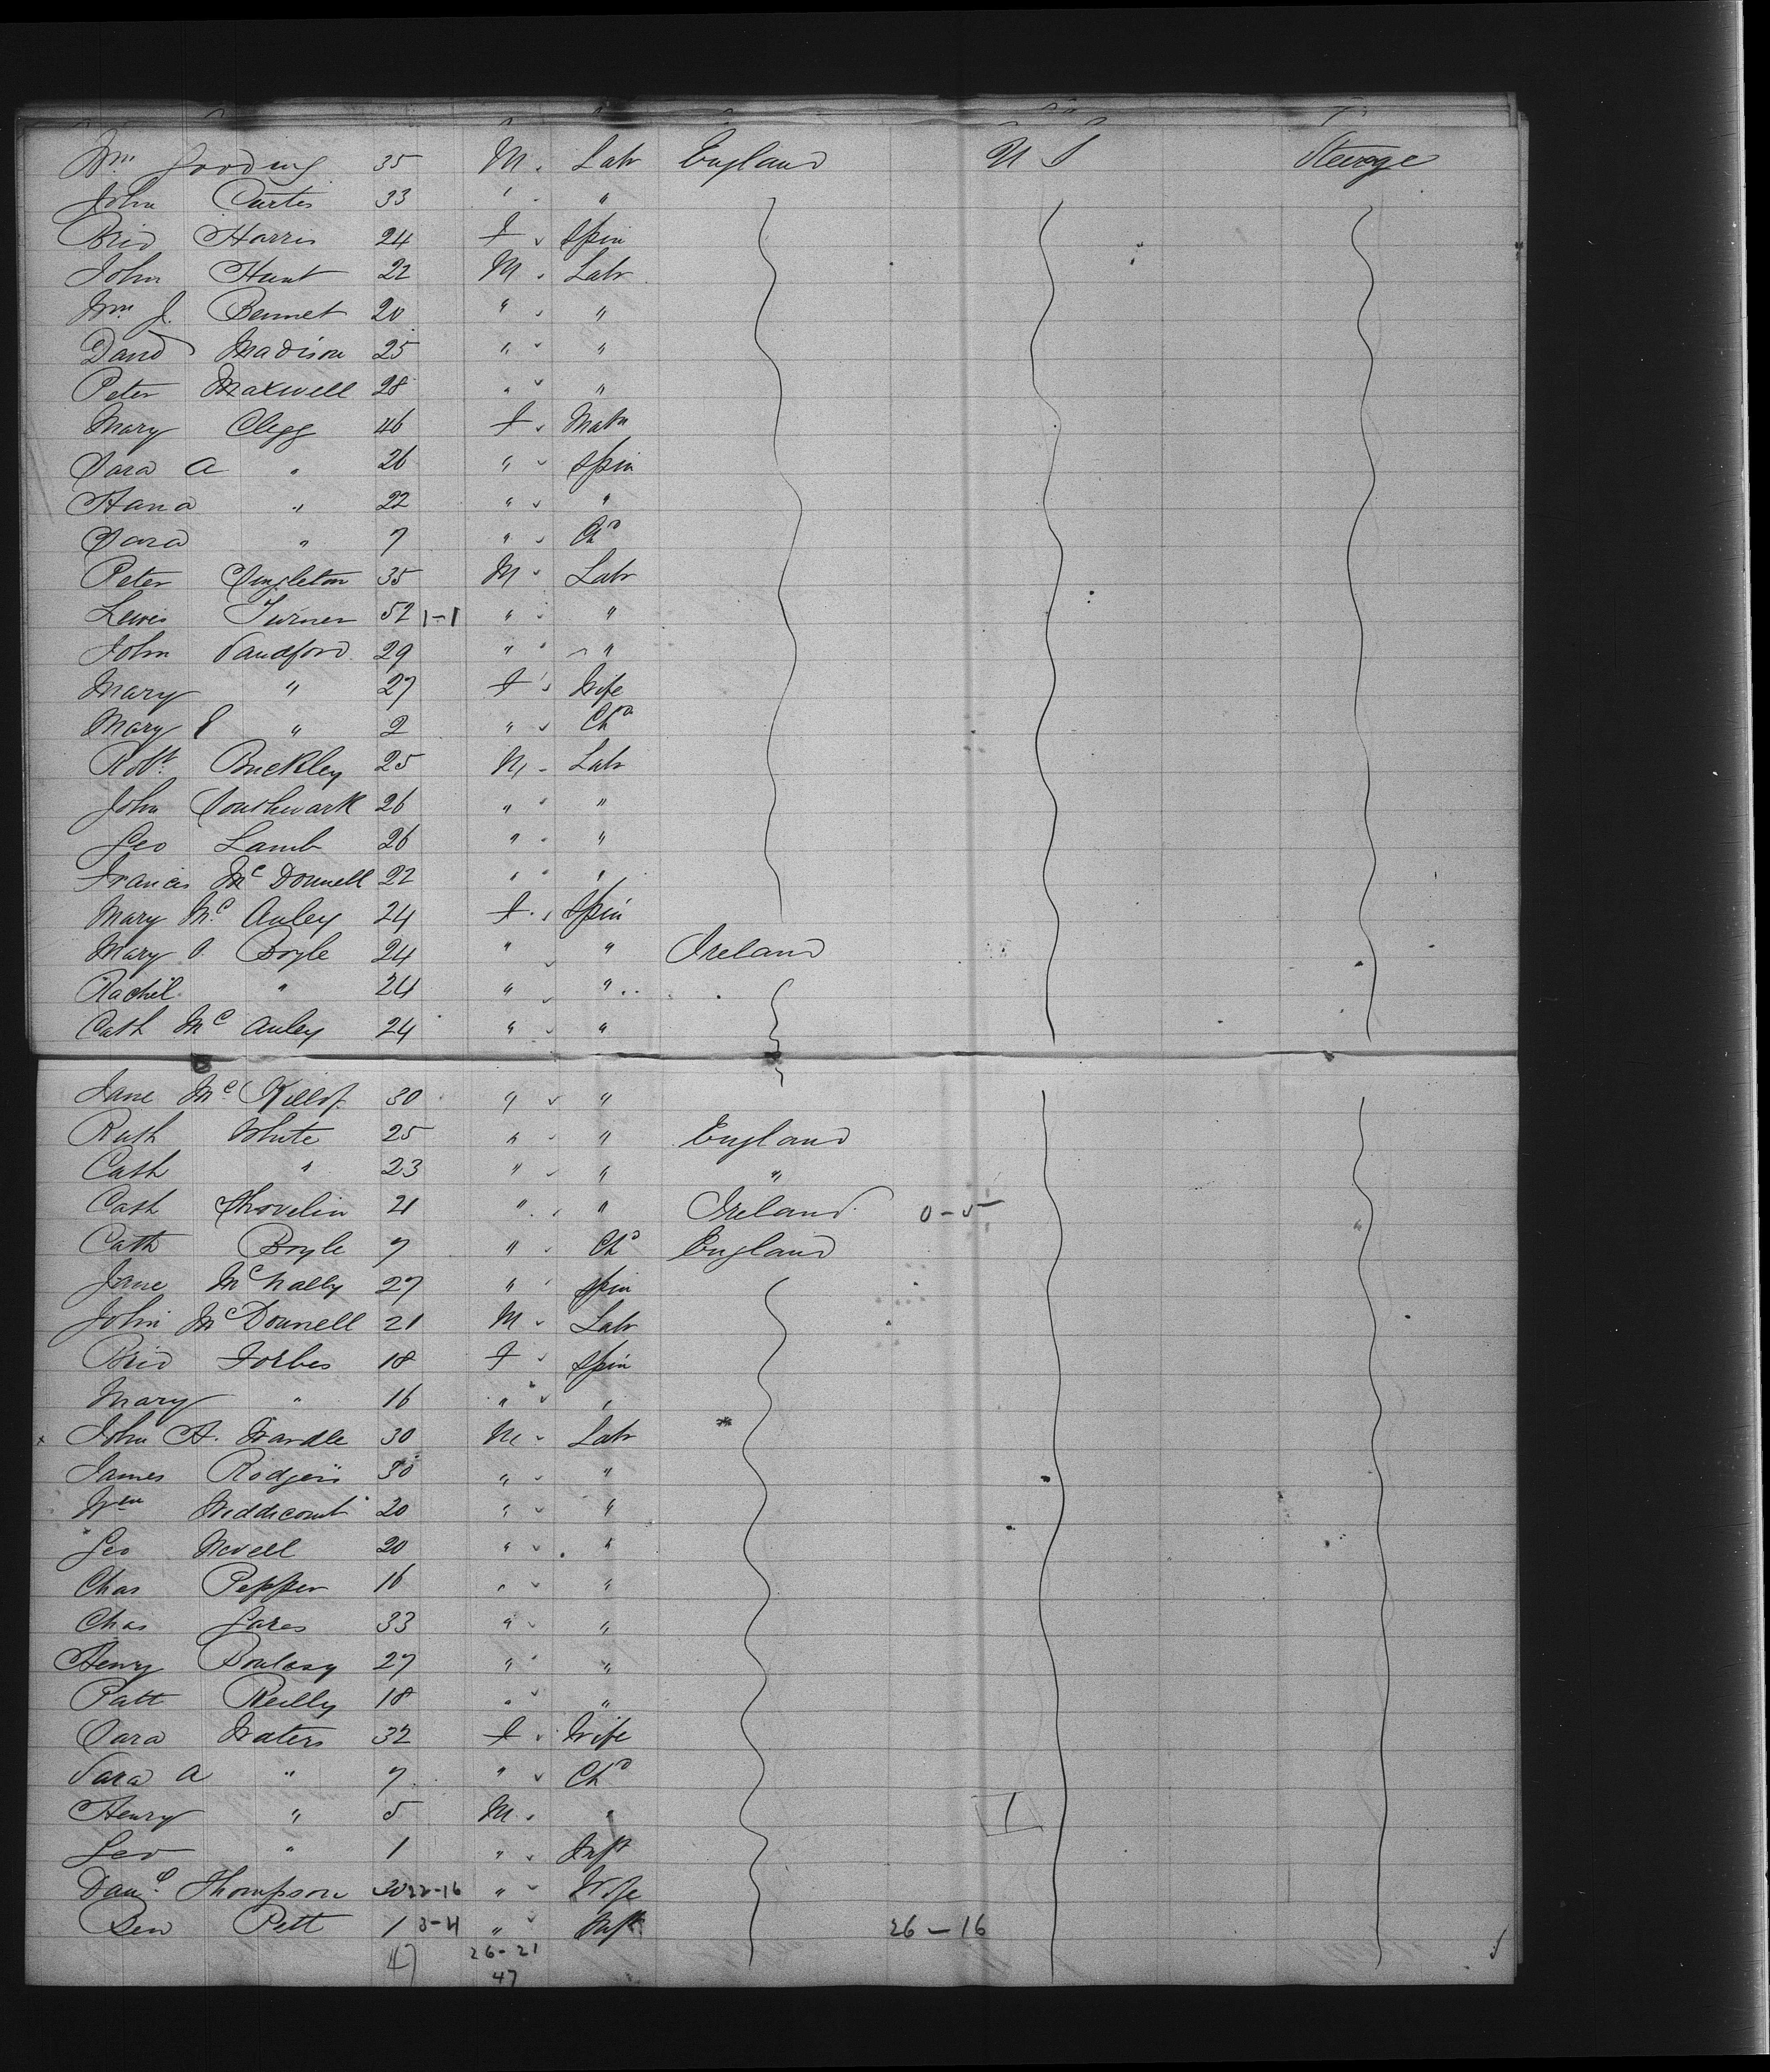 Wm Gooding 35 M Labr England U S Steerage
John Curtis 33 " "
Brid Harris 24 F Spin
John Hunt 22 M Labr
Wm J. Bennet 20 " "
David Madison 25 " "
Peter Maxwell 28 " "
Mary Clegg 46 F Matn
Sara A " 26 " Spin
Hana " 22 " "
Sara " 7 " Chd
Peter Singleton 35 M Labr
Lewis Turner 52 1-1 " "
John Sandford 29 " "
Mary " 27 F Wife
Mary E " 2 " Chd
Robt Buckley 25 M Labr
John Southwark 26 " "
Geo Lamb 26 " "
Francis McDonnell 22 " "
Mary McAuley 24 F Spin
Mary Boyle 24 " " Ireland
Rachel " 24 " "
Cath McAuley 24 " "
Jane McKillop 30 " "
Ruth White 25 " " England
Cath " 23 " " "
Cath Shovelin 21 " " Ireland 0-5
Cath Boyle 7 " Chd England
Jane McNally 27 " Spin
John McDonnell 21 M Labr
Brid Forbes 18 F Spin
Mary " 16 " "
x John H. Wardle 30 M Labr
James Rodgers 30 " "
Wm Widdicomb 20 " "
Geo 20 " "
Chas Pepper 16 " "
Chas 33 " "
Henry 27 " "
Patt Reilly 18 " "
Sara Waters 32 F Wife
Sara A " 7 " Chd
Henry " 5 M "
Geo " 1 " Inft
Danl Thompson 30 22-16 " Wife
Ben Pett 1 3-4 " Inft 26-16
47 26-21
47